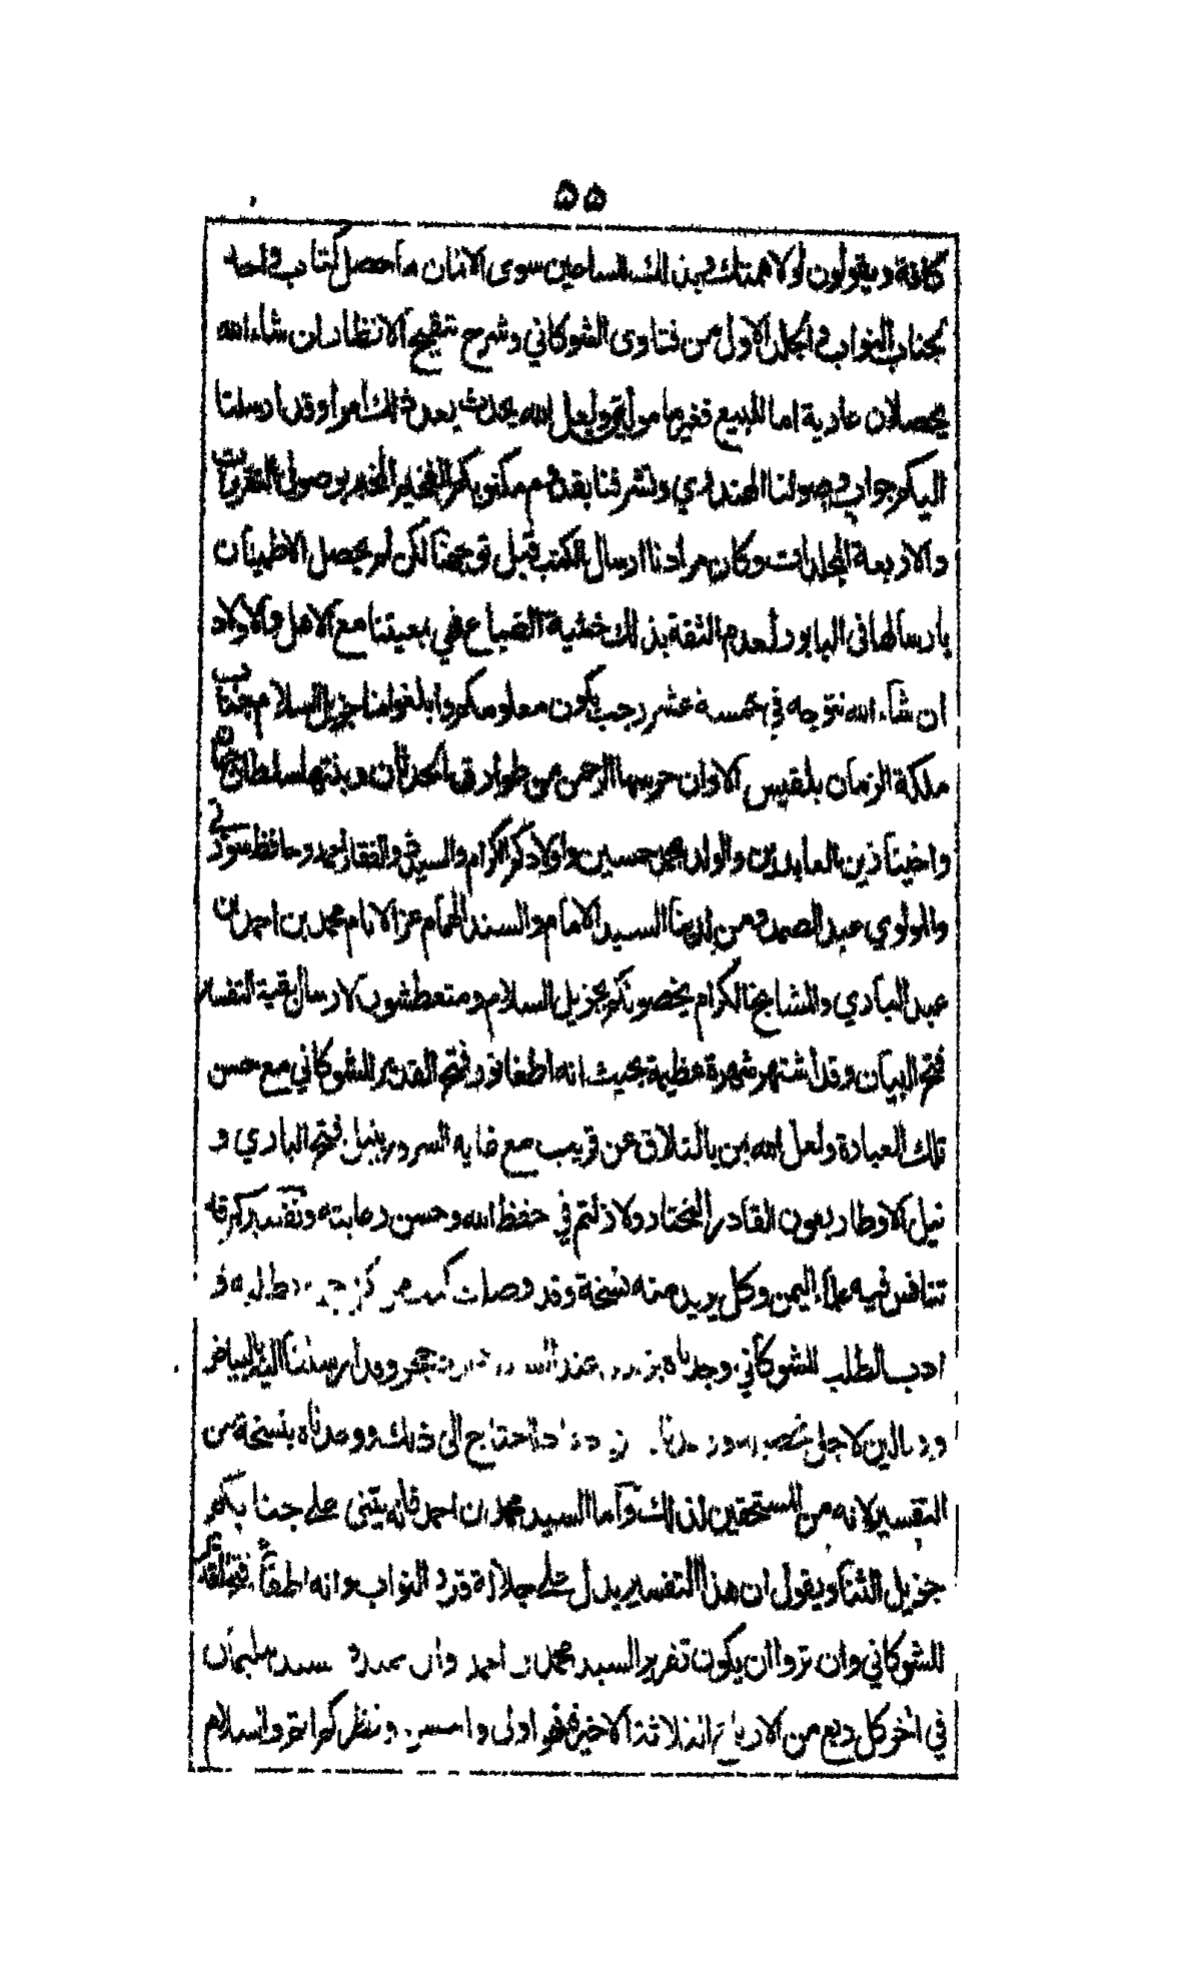 ٥٥
كافة ويقولون لولا همتك وبذلك المساعين سوى الاثمان ما حصل كتاب واحد
بجناب النواب والجلد الاول من فتاوى الشوكاني وشرح تنقيح الانظار ان شاء الله
يحصلان عارية اما للبيع فغيرها مولعة ولعل الله يحدث بعد ذلك امرا وقد ارسلنا
اليكم جواب وصولنا الهنداري وتشرفنا بقدوم مكتوبكم الفخيم المخبر بوصول التقريرات
والاربعة المجلدات وكان مرادنا ارسال الكتب قبل توجهنا لكن لم يحصل الاطمينان
بارسالها في البابور لعدم الثقة بذلك خشية الضياع فهي بمعيتنا مع الاهل والاولاد
ان شاء الله نتوجه في خمسة عشر رجب يكون معلومكم وابلغوا منا جزيل السلام جناب
ملكة الزمان بلقيس الاوان حرسها الرحمن من طوارق الحدثان وبنتها سلطان جهان
واخينا زين العابدين والولد محمد حسين واولادكم الكرام والسيد ذو الفقار احمد وحافظ سورتي
والمولوي عبد الصمد ومن لدينا السيد الامام والسند الهمام عز الانام محمد بن احمد بن
عبد الباري والمشايخ الكرام يخصونكم بجزيل السلام ومتعطشون لارسال بقية التفسير
فتح البيان وقد اشتهر شهرة عظيمة بحيث انه اطفا نور فتح القدير للشوكاني مع حسن
تلك العبارة ولعل الله يمن بالتلاق عن قريب مع غاية السرور بنيل فتح الباري و
نيل الاوطار بعون القادر المختار ولا زلتم في حفظ الله وحسن رعايته وتفسيركم قد
تنافس فيه علماء اليمن وكل يريد منه نسخة وقد وصلت
ادب الطلب للشوكاني وجدناه وقد ارسلنا اليه
لاجل احتاج الى ذلك ووعدناه بنسخة من
التفسير لانه من المستحقين لذلك واما السيد محمد بن احمد فانه يثني على جنابكم
جزيل الثناء ويقول ان هذا التفسير يدل على جلالة قدر النواب وانه اطفأ فتح القدير
للشوكاني وان تروا ان يكون تقرير السيد محمد بن احمد
في اخر كل ربع من الارباع الثلاثة الاخيرة فهو اولى واحسن ونظركم اتم والسلام